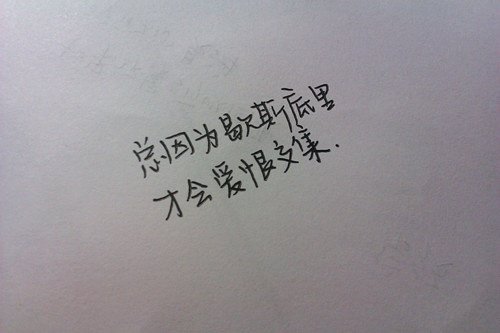 总因为歇斯底里
才会爱恨交集.